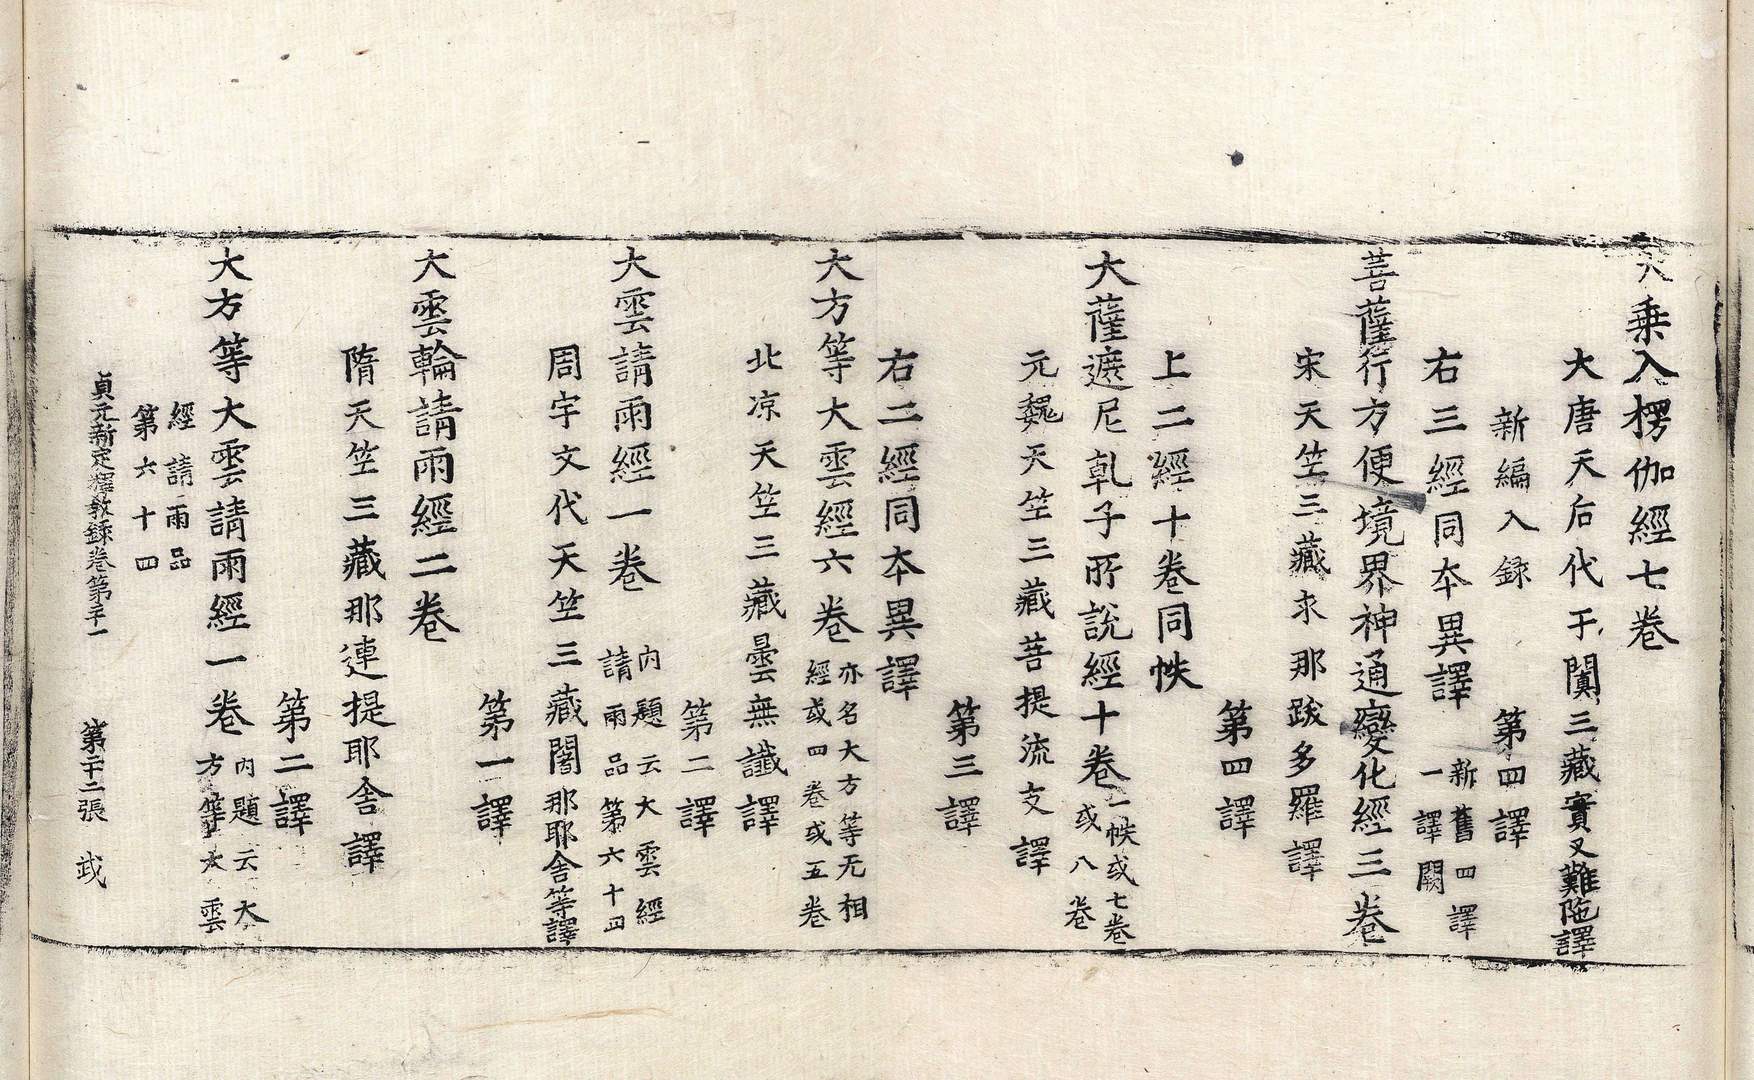 大乗入楞伽經七卷
大唐天后代于闐三藏實叉難陁譯
新編入録　第四譯
右三經同本異譯 新舊四譯
一譯闕
菩薩行方便境界神通變化經三卷
宋天竺三藏求那跋多羅譯
第四譯
上二經十卷同帙
大薩遮尼乹子所說經十卷 一帙或七卷
或八卷
元魏天竺三藏菩提流支譯
第三譯
右二經同本異譯
大方等大雲經六卷 亦名大方等无相
經或四卷或五卷
北凉天竺三藏曇無讖譯
第二譯
大雲請雨經一卷 內題云大雲經
請雨品第六十四
周宇文代天竺三藏闍那耶舍等譯
第一譯
大雲輪請雨經二卷
隋天竺三藏那連提耶舍譯
第二譯
大方等大雲請雨經一卷 內題云大
方等大雲
經請雨品
第六十四
貞元新定釋教録卷第二十一　第二十二張